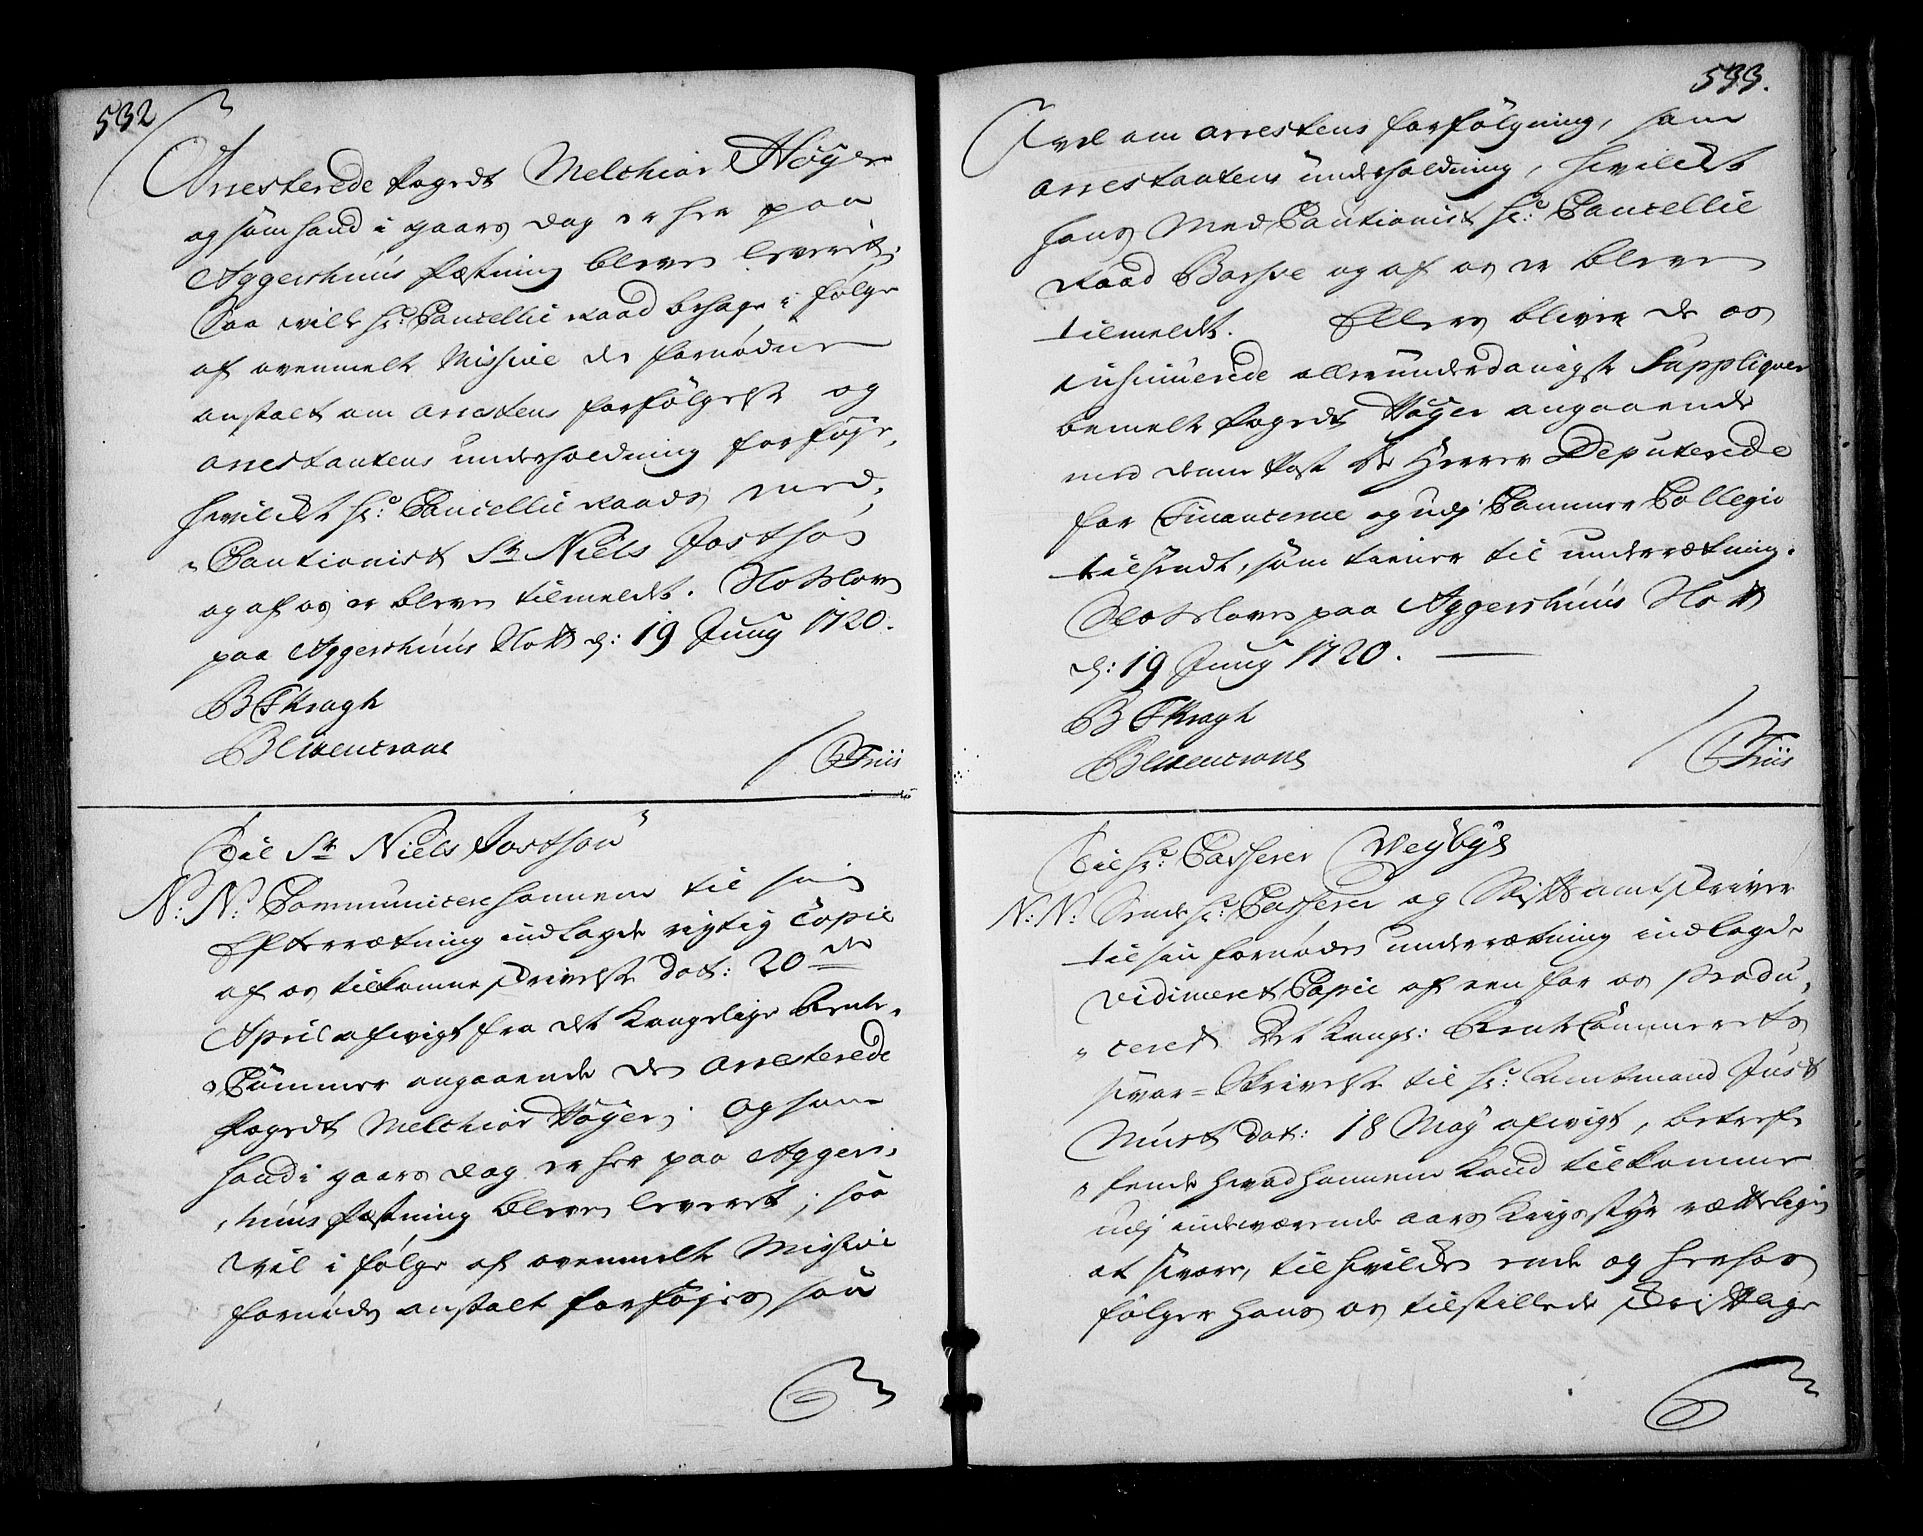 532
Arresterede fogedt Melchior Høyer
og som hand i gaars dag er her paa
Aggershuus fæstning bleven leverit;
Saa vilde hr: Cancellie Raad behage i følge
af ovenmelte Missive de fornødne
anstalt om arrestens forfølgelse og
arrestantens underholdning forføye,
hvilket hr: Cancellie Raads med„
„Cautionist Sr Niels Jostsøn
og af os er bleven tilmeldt. Slotsloven
paa Aggershuus Slott d: 19 Juny 1720.
B Skragh
B Evencrone
/ C Friis
Til Sr Niels Jostsøn
N: N: Communicere hannem til sin
Efterretning indlagde rigtig Copie
af os tilkomne skrivelse dat: 20de
April afvigt fra det Kongelige Rente„
„Cammer angaaende den arresterede
fogedt Melchior Høyer; og som
hand i gaars dag er her paa Aggers„
„huus fæstning bleven leveret; saa
vil i følge af ovenmelte Missive
fornøden anstalt forføyes saa
533.
vel om arrestens forfølgning, som
arrestantens underholdning, hvilket
hans Med Cautionist hr: Cancellie
Raad Basse og af os er bleven
tilmeldt. Ellers bliver de os
insinuerede allerunderdanigste Suppliquer
bemelte fogedt Høyer angaaende
med denne Post de Herrer Deputerede
for Financerne og udj Cammer Collegio
tilsendt, som tiener til underrætning.
Slotsloven paa Aggershuus Slott
d: 19 Juny 1720.
B Skragh
B Evencrone
/ C Friis
Til hr: Casserer Weybye
N: N: Sende hr: Casserer og Stiftamtskriver
til sin fornøden underætning indlagde
vidimeret Copie af een for os produ„
„ceret Det Kongl: Rente Cammerets
svar-Skrivelse til hr: Amtmand Just
Must dat: 18 May afvigt, betref„
„fende hvad hannem kand tilkomme
udj indeværende aars Krigsstyr rætteligen
at svare, til hvilken ende og herhos
følger hans os tilstillede skriftlige